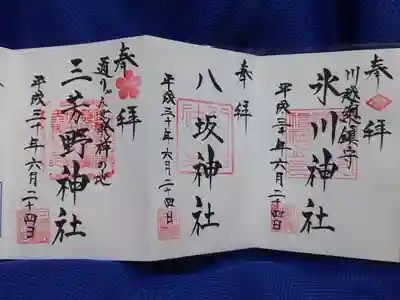 奉拝
川越総鎮守
氷川神社
平成三十年六月二十四日
奉拝
八坂神社
平成三十年六月二十四日
奉拝
通りゃんせ歌詞の地
三芳野神社
平成三十年六月二十四日